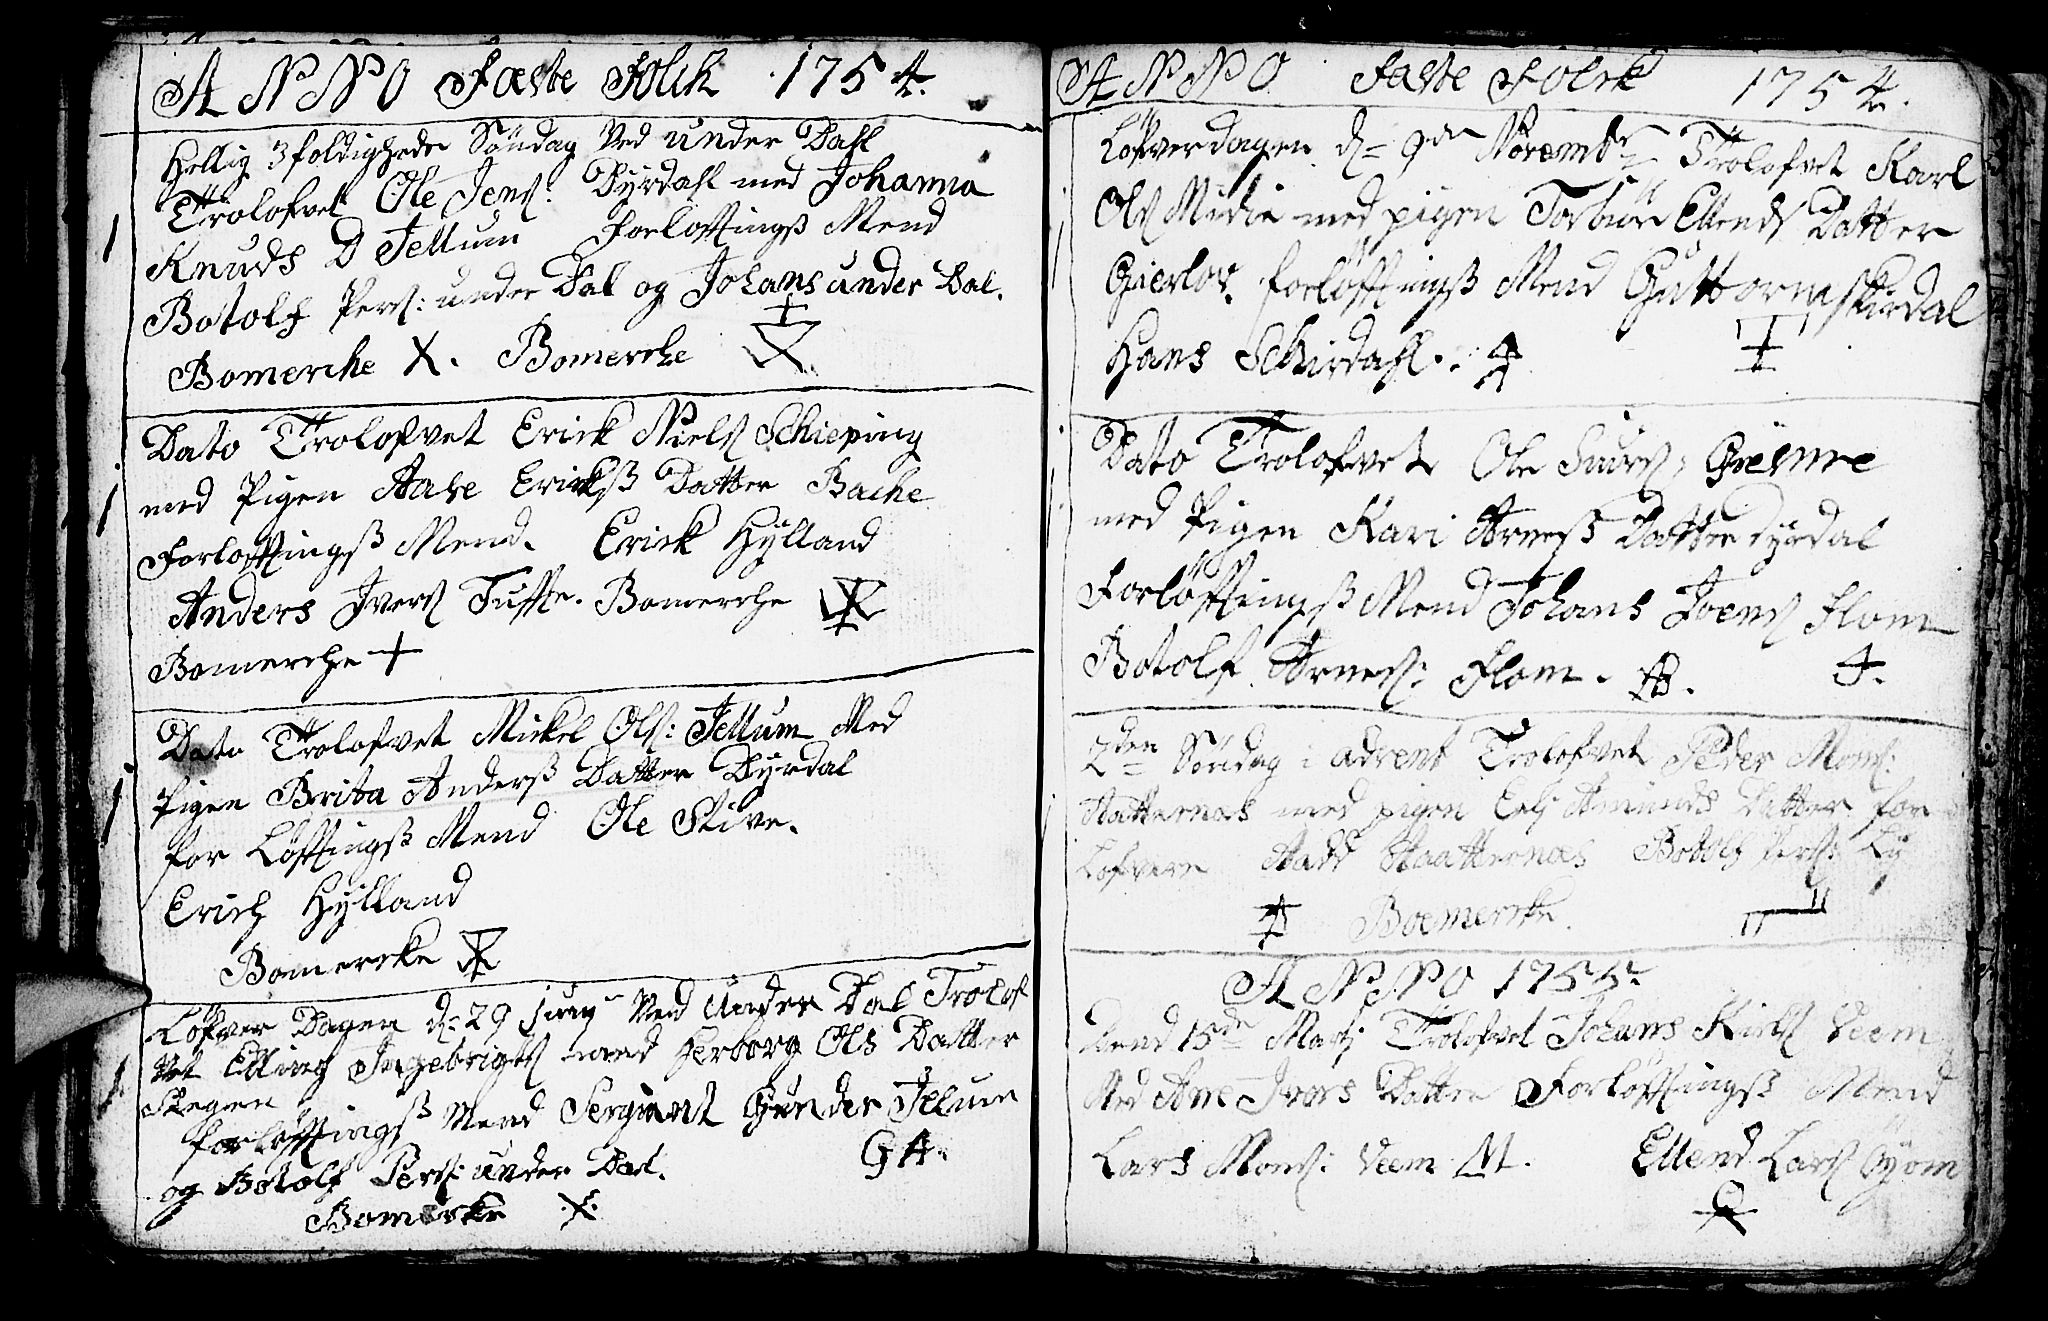 ANNO Fæste Folck 1754.
Hellig 3foldigheds Søndag Ved under Dahl
Trolofvet Ole Jens: Dyrdahl med Johanna
Knuds D Jellum Forløftingsß Mend
Botolf Pers: under Dal og Johans under Dal.
Bomerche X. Bomerche
Dato Trolofvet Erick Niels Schieping
med Pigen Aase Ericksß Datter Bache
Forløftingsß Mend. Erick Hÿlland
Anders Ivers Tufte. Bomerche
Bomerche +
Dato Trolofvet Mickel Ols: Jellum Med
Pigen Brita Andersß Datter Dÿrdal
for Løftingsß Mend Ole Stive.
Erich Hÿlland
Bomercke
Løfver Dagen d: 29 juny Ved Under Dal Trolof
Vet Elling Ingebrigts med Herborg Ols Datter
Skegen
forløftingsß Mend Sergiant Gunder Jelum
og Botolf Pers: under Dal. G A.
Bomerke X.
ANNO Faste Folck 1754.
Løfverdagen d= 9de Novembr Trolofvet Karl
Ols Midie med pigen Torbiør Ellends Datter
Gierlov. forløftingsß Mend Guttorm Skirdal
Hans Schirdahl.
Dato Trolofvet Ole Siurs Giesme
med Pigen Kari Arnesß Datter Dyrdal
Forløftingsß Mend Johans Joens Flom
Botolf Arnes: Flom.
2den Søndag i advent Trolofvet Peder Mons:
med pigen Amunds Datter for
Lofvere Botolf Pers:
Boemercke.
ANNO 1755
dend 15de Marti Trolofvet Johans Niels Veem
Med Ane Ivers Datter Forløftingsß Mend
Lars Mons: Veem M. Ellend Lars Gÿom